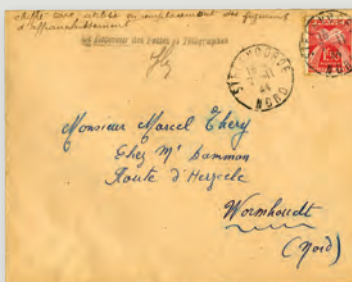 chiffre taxe utilisé en remplacement des figurines
d'affranchissement
Le Receveur des Postes et Télégraphes
STEENVOORDE
18-11
44
NORD
Monsieur Marcel Thery
Chez Mr Dammon
Route d'Herzeele
Wormhoudt
(Nord)